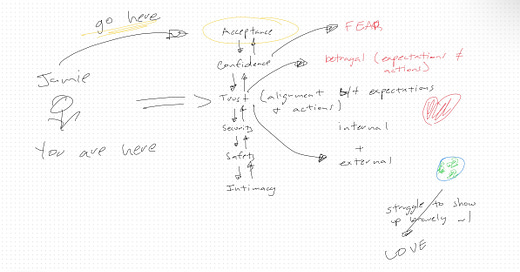 go here
Acceptance
FEAR
Confidence
betrayal (expectations ≠
actions)
Jamie
Trust (alignment b/t expectations
& actions)
Security
internal
+
You are here
Safety
external
Intimacy
struggle to show
up bravely w/
LOVE